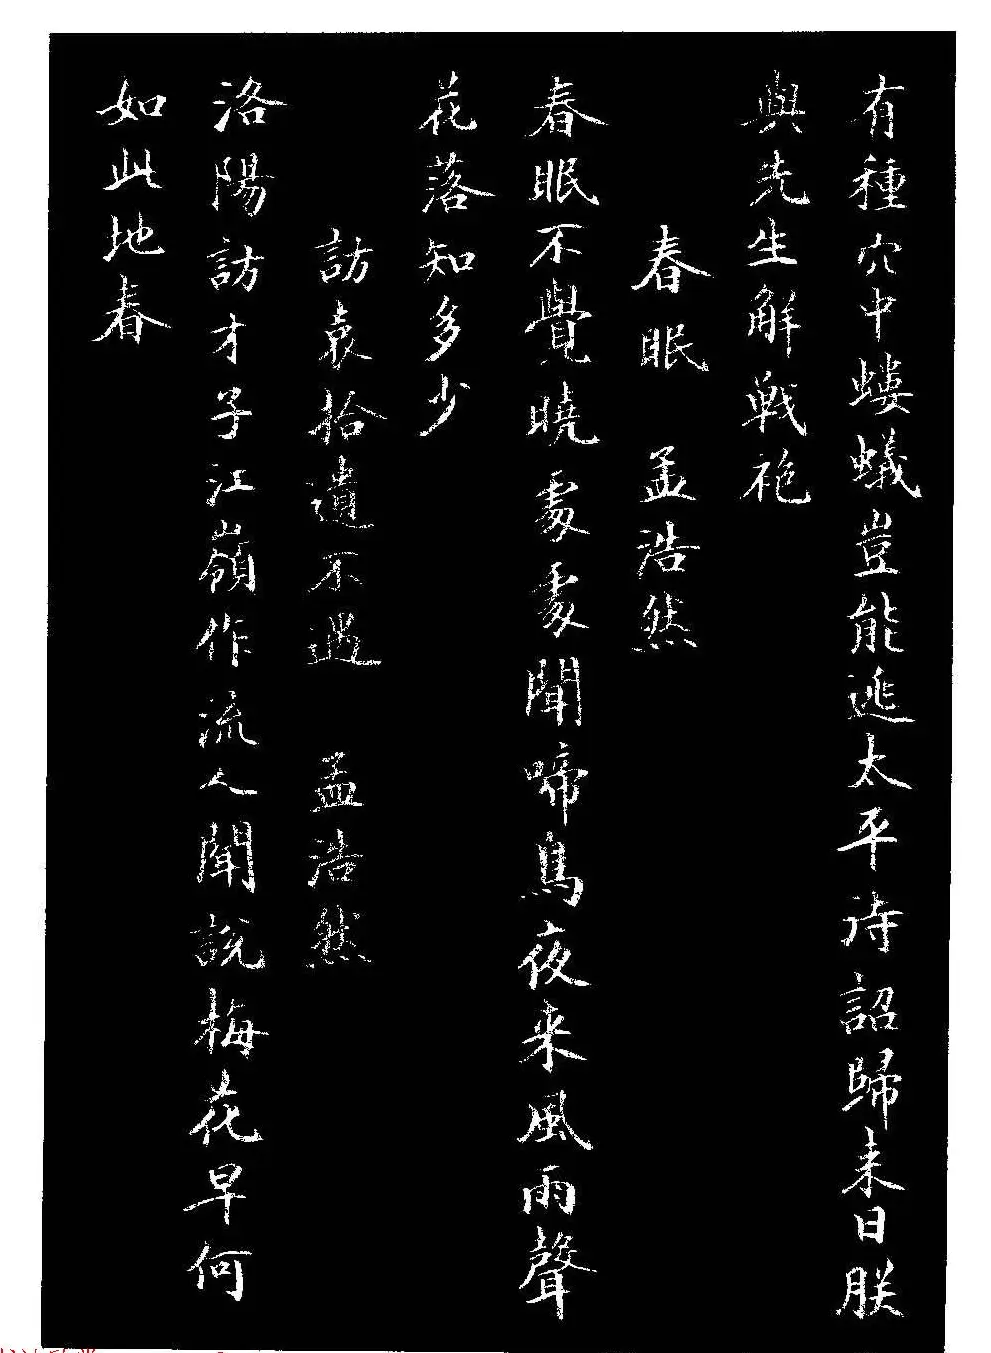 有種穴中螻蟻豈能逃太平待詔歸来日朕
與先生解戰袍
春眠 孟浩然
春眠不覺曉處處聞啼鳥夜来風雨聲
花落知多少
訪袁拾遺不遇 孟浩然
洛陽訪才子江嶺作流人聞說梅花早何
如此地春